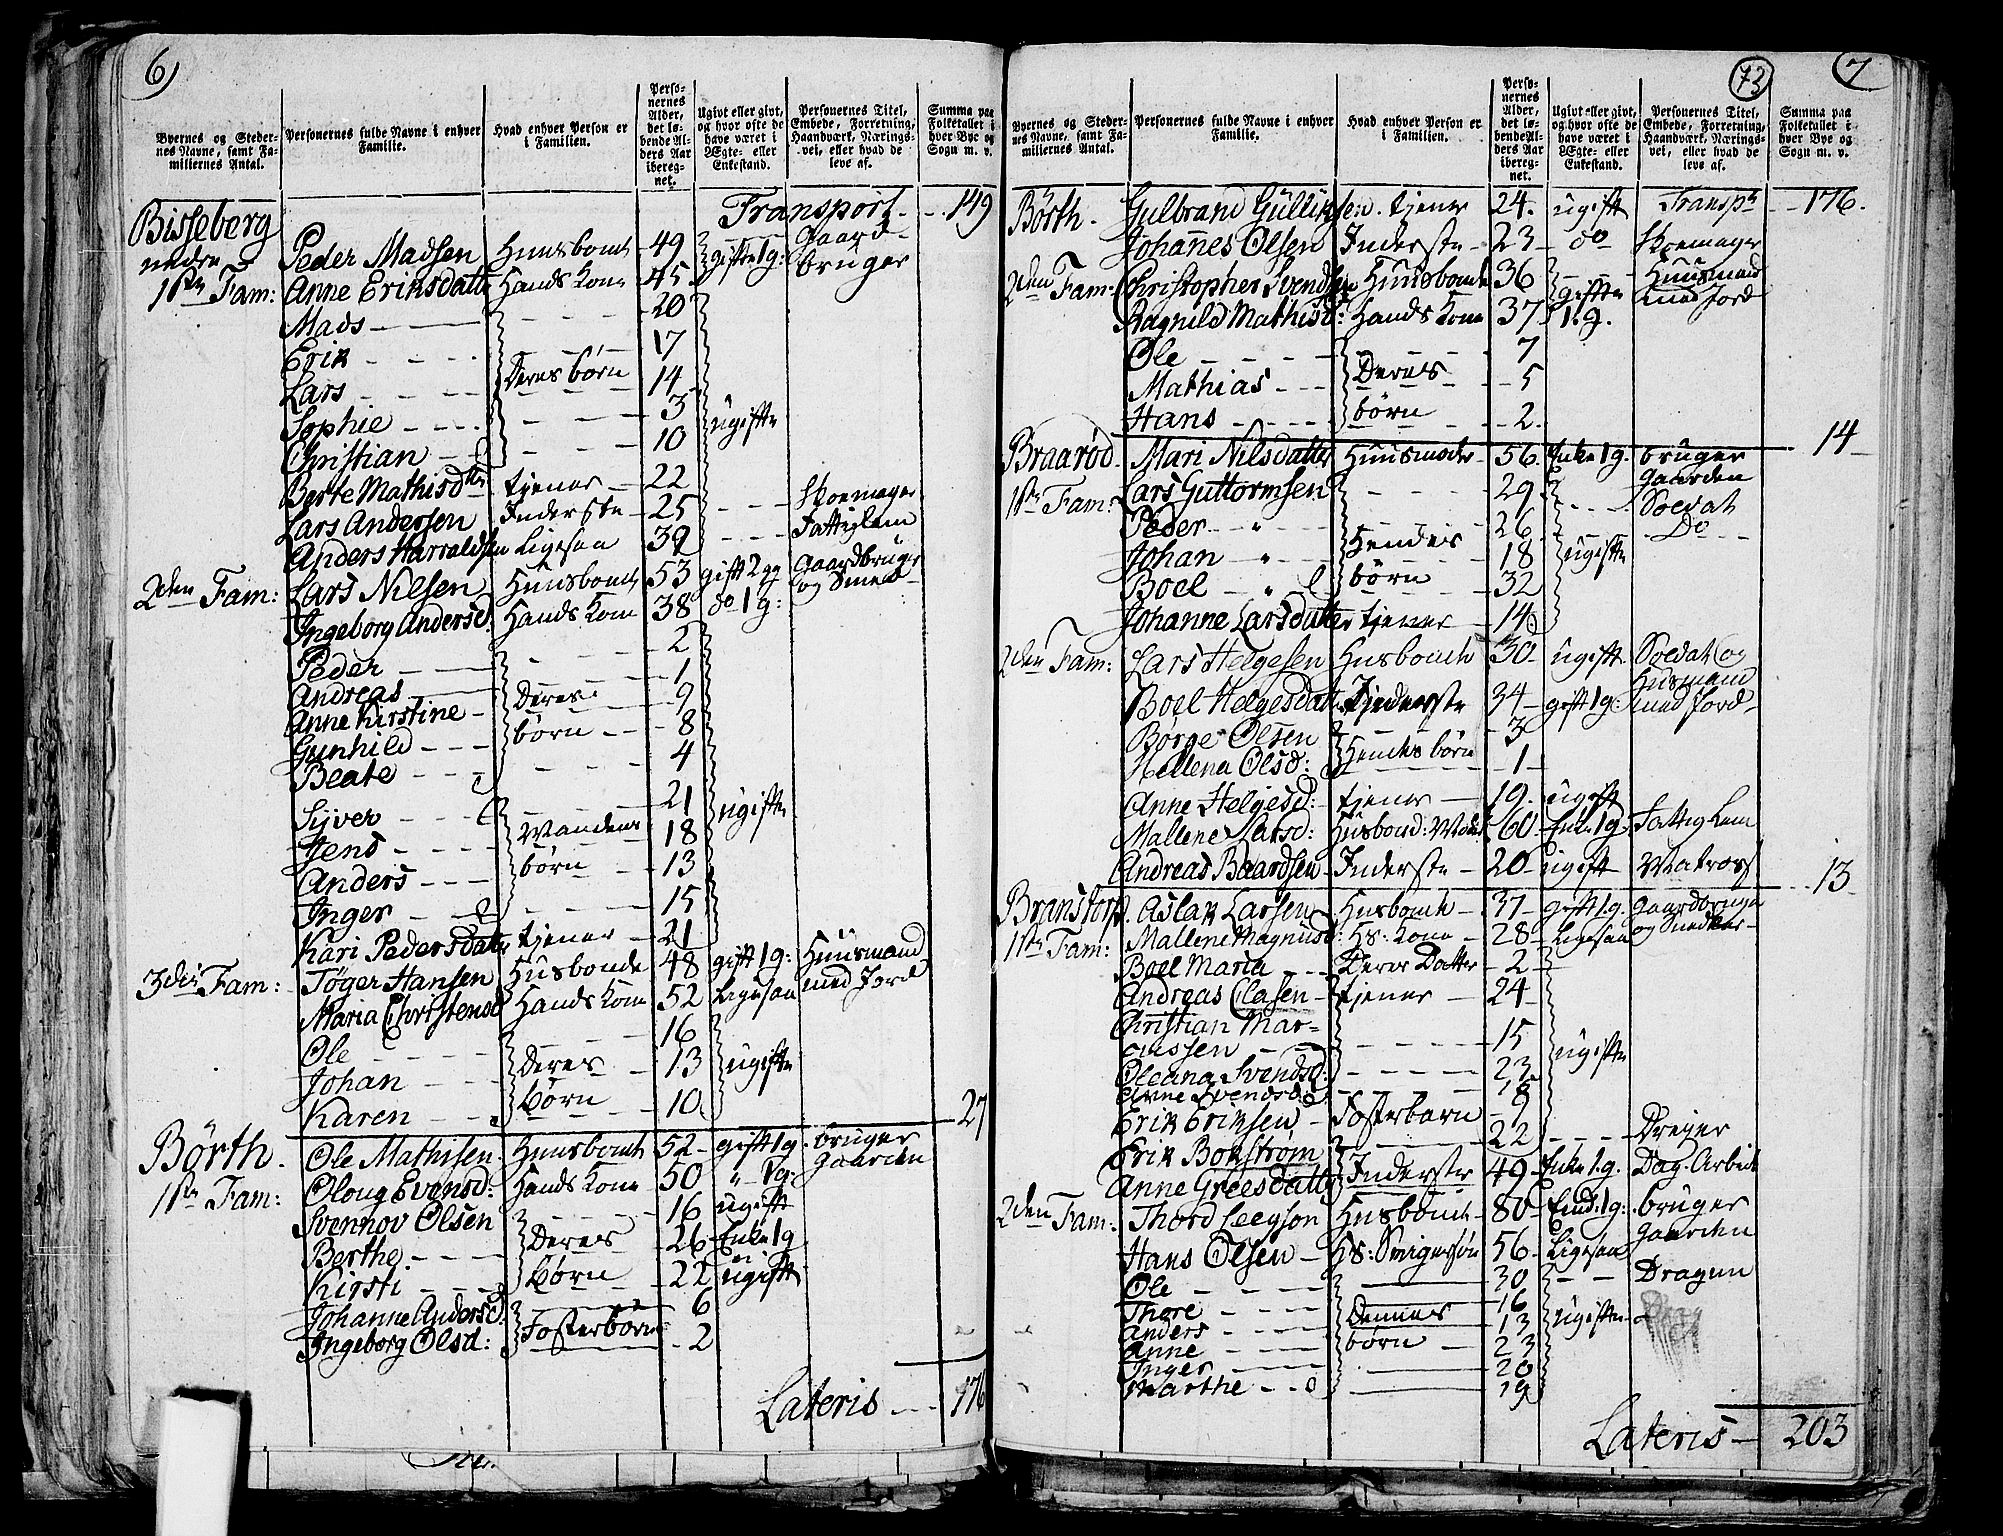 6)
Byernes og Steder-
nes Navne, samt Fa-
miliernes Antal.
Personernes fulde Navne i enhver
Familie.
Hvad enhver Person er
i Familien.
Perso-
nernes
Alder,
det lø-
bende Al-
ders Aar
ibereg-
net.
Ugivt eller givt,
og hvor ofte de
have været i
Ægte- eller
Enkestand.
Personernes Titel,
Embede, Forretning,
Haandværk, Nærings-
vei, eller hvad de
leve af.
Summa paa
Folketallet i
hver Bye og
Sogn m. v.
Transport - - 149
Bisseberg
nedre
Peder Madsen Huusbonde 49 gifte 1 g: Gaard-
bruger
1ste Fam: Anne Eriksdatter Hands Kone 45
Mads 20
Erik 17
Lars Deres børn 14
Sophie 3 ugifte
Christian 10
Berte Mathisdtr tjener 22
Lars Andersen Inderste 25 Skoemager
Anders Harraldsen Ligesaa 39 Fattiglem
2den Fam: Lars Nilsen Huusbonde 53 gift 2 g Gaardbruger
og Smed
Ingeborg Andersd. Hands Kone 38 do 1 g:
Peder 2
Andreas 1
Anne Kirstine Deres 9
Gunhild børn 8
Beate 4
Siver 21 ugifte
Jens Mandens 18
Anders børn 13
Inger 15
Kari Pedersdatter tjener 21
3die Fam: Töger Hansen Husbonde 48 gift 1 g: Huusmand
Maria Christensd Hands Kone 52 Ligesaa med Jord
Ole 16
Johan Deres 13 ugifte
Karen Børn 10
27
Börth. Ole Mathisen Huusbonde 52 gift 1 g bruger
Gaarden
1ste Fam: Oloug Evensd: Hands Kone 50 " 1 g:
Svennov Olsen 16 ugift
Berthe Deres 26 Enke 1 g
Kirsti Børn 22 ugift
Johanne Andersd: 6
Ingeborg Olsd: Fosterbörn 2
Lateris - - 176
73
7
Byernes og Steder-
nes Navne, samt Fa-
miliernes Antal.
Personernes fulde Navne i enhver
Familie.
Hvad enhver Person er
i Familien.
Perso-
nernes
Alder,
det lø-
bende Al-
ders Aar
ibereg-
net.
Ugivt eller givt,
og hvor ofte de
have været i
Ægte- eller
Enkestand.
Personernes Titel,
Embede, Forretning,
Haandværk, Nærings-
vei, eller hvad de
leve af.
Summa paa
Folketallet i
hver Bye og
Sogn m. v.
Börth. Gulbrand Gullingsen tjener 24. ugift Transpt - - 176.
Johannes Olsen Inderste 23 do Skoemager
2den Fam: Christopher Svendsen Huusbonde 36 gifte Huusmand
med Jord
Ragnild Mathisd: Hands Kone 37 1. g.
Ole 7
Mathias Deres 5
Hans børn 2
14
Braarød. Mari Nilsdatter Huusmoder 56 Enke 1 g. bruger
Gaarden
1ste Fam: Lars Guttormsen 29 Soldat
Peder " 26 Do
Johan " Hendes 18 ugifte
Boel " børn 32
Johanne Larsdatter tjener 14
2den Fam: Lars Helgesen Husbonde 30 ugift Soldat og
Husmand
Boel Helgesdatter Inderste 34 gift 1 g: med Jord
Börge Olsen 3
Hellena Olsd: Hendes børn 1
Anne Helgesd: tjener 19. ugift
Mallene Larsd: Husbond: Moder 60 Enke 1 g Fattig Lem
Andreas Baardsen Inderste 20 ugift Matros
13
Branstorp. Aslak Larsen Husbonde 37 gift 1 g. Gaardbruger
og Snedker
1ste Fam: Mallene Magnusd: Hs: Kone 28 Ligesaa
Boel Maria Deres Datter 2
Andreas Olasen tjener 24
Christian Mar-
cussen 15 ugifte
Oleana Svendsd: 23
Anne Svendsd: 18
Erik Eriksen Fosterbarn 9
Erik Bokstrøm 22 Dreyer
Anne Greesdatter Inderster 49 Enke 1. g. Dag. Arbeid
2den Fam: Thord Leegson Husbonde 80 Enk. 1 g: bruger
Gaarden
Hans Olsen Hs: Svigersøn 56 Ligesaa
Ole 30 Dragun
Thore Dennes 16
Anders børn 13 ugifte
Anne 23
Inger 20
Marthe 19
Lateris - 203